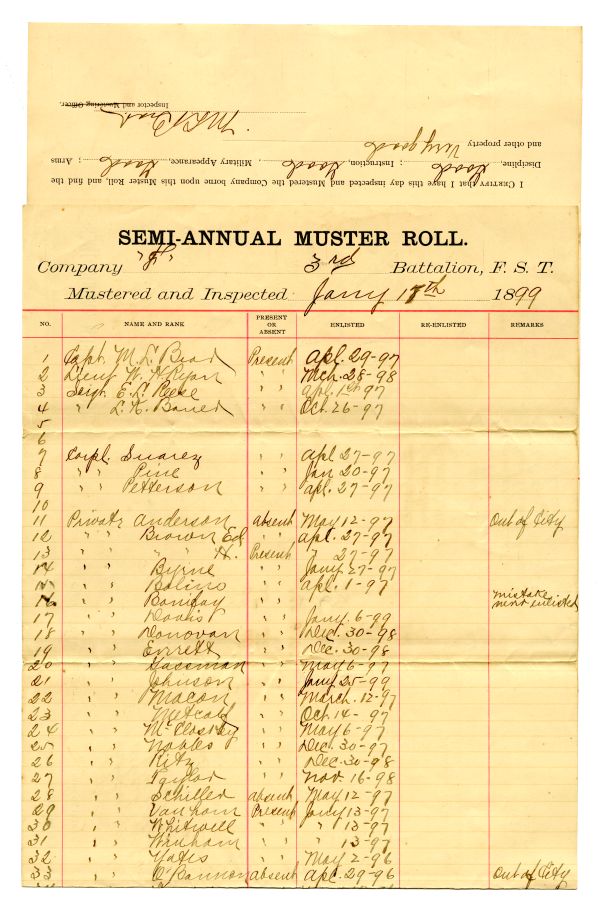 I CERTIFY that I have this day inspected and Mustered the Company borne upon this Muster Roll, and find the
Discipline, Good ; Instruction, Good , Military Appearance, Good ; Arms
and other property Very good
Inspector and Mustering Officer.
SEMI-ANNUAL MUSTER ROLL.
Company "H" 3rd Battalion, F. S. T.
Mustered and Inspected Jany 17th 1899
NO. NAME AND RANK PRESENT OR ABSENT ENLISTED RE-ENLISTED REMARKS
1 Capt. M. L. Present Apl. 29-97
2 Lieut W. H. Ryan " " Mch. 28-98
3 Sergt. E. L. Reese " " apl. 1st 97
4 " L. H. " " Oct. 26-97
5
6
7 Corpl. Suarez " " apl 27-97
8 " " Pine " " Jan 20-97
9 " " Petterson " " apl. 27-97
10
11 Private Anderson absent May 12-97 Out of City
12 " " Brown Ed " " apl. 27-97
13 " " " H. Present " 27-97
14 " " Byrne " " Jany 27-97
15 " " Bolino " " apl. 1-97
16 " " Bonifay mistake never enlisted
17 " " Davis " " Jany. 6-99
18 " " Donovan " " Dec. 30-98
19 " " Everett " " Dec. 30-98
20 " " Gassman " " May 6-97
21 " " Johnson " " Jany 25-99
22 " " Macon " " March. 12-97
23 " " Metcalf " " Oct. 14-97
24 " " McCloskey " " May 6-97
25 " " Nobles " " Dec. 30-97
26 " " Ritz " " Dec. 30-98
27 " " Taylor " " Nov. 16-98
28 " " Schiller absent May 12-97
29 " " Van ham Present Jany 13-97
30 " " Whitwell " " " 13-97
31 " " " " " 13-97
32 " " Yates " " May 2-96
33 " " O'Bannon absent apl. 29-96 Out of City